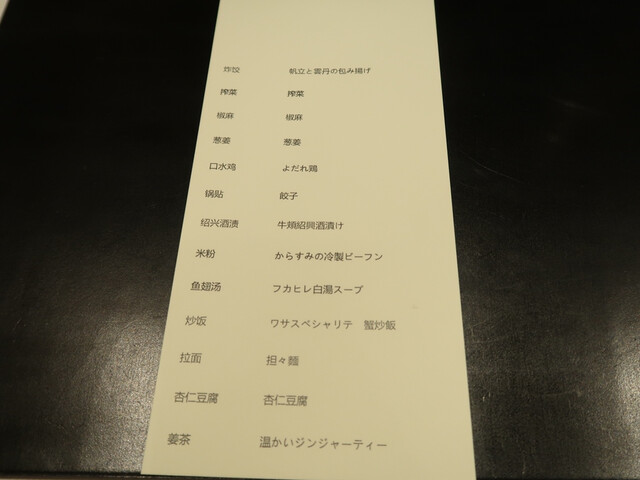 炸饺 帆立と雲丹の包み揚げ
搾菜 搾菜
椒麻 椒麻
葱姜 葱姜
口水鸡 よだれ鶏
锅贴 餃子
绍兴酒渍 牛頬紹興酒漬け
米粉 からすみの冷製ビーフン
鱼翅汤 フカヒレ白湯スープ
炒饭 ワサスペシャリテ 蟹炒飯
拉面 担々麺
杏仁豆腐 杏仁豆腐
姜茶 温かいジンジャーティー